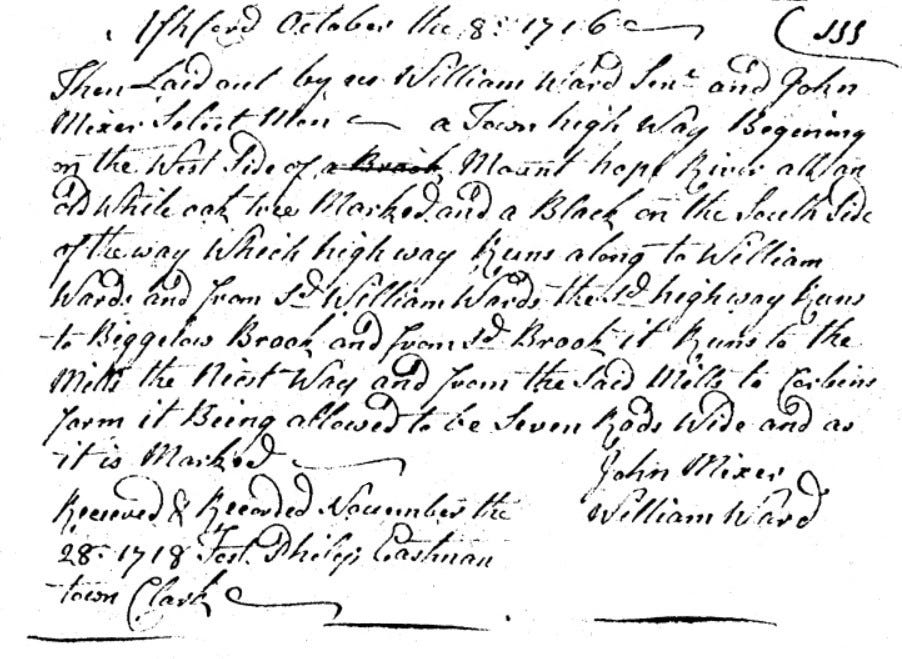 Ashford October the 8: 1716
Then Laid out by us William Ward Senr and John
Mixer Select Men a Town high Way Begining
on the West Side of a Brook Mount hope River att an
old White oak tree Marked and a Black on the South Side
of the way Which high way Runs along to William
Wards and from sd William Wards the sd high way Runs
to Biggelow Brook and from sd Brook it Runs to the
Mills the Niest Way and from the Said Mills to Corbins
farm it Being allowed to be Seven Rods Wide and as
it is Marked
John Mixer
William Ward
Received & Recorded November the
28: 1718 Test. Philip Eastman
town Clark